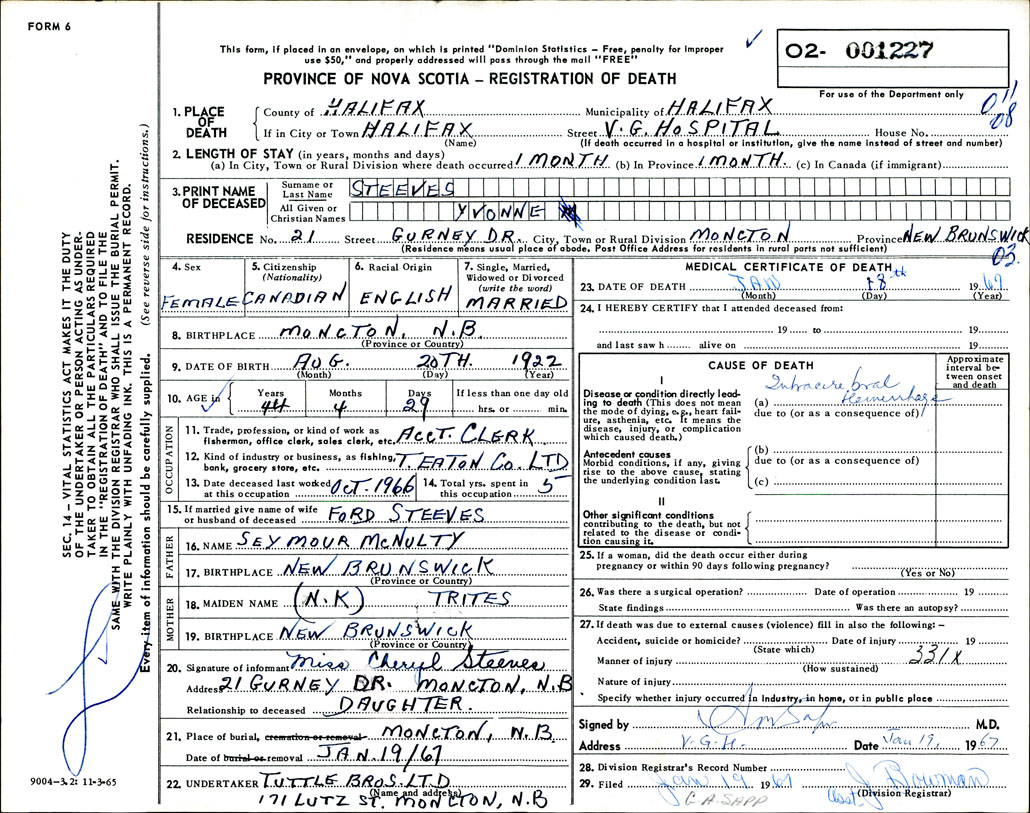 FORM 6
This form, if placed in an envelope, on which is printed "Dominion Statistics – Free, penalty for improper
use $50," and properly addressed will pass through the mail "FREE"
O2- 001227
For use of the Department only
PROVINCE OF NOVA SCOTIA – REGISTRATION OF DEATH
011
08
1. PLACE OF DEATH
County of HALIFAX Municipality of HALIFAX
If in City or Town HALIFAX Street V.G. HOSPITAL House No.
(Name) (If death occurred in a hospital or institution, give the name instead of street and number)
2. LENGTH OF STAY (in years, months and days)
(a) In City, Town or Rural Division where death occurred 1 MONTH (b) In Province 1 MONTH. (c) In Canada (if immigrant)
3. PRINT NAME OF DECEASED
Surname or Last Name STEEVES
All Given or Christian Names YVONNE
RESIDENCE No. 21 Street GURNEY DR. City, Town or Rural Division MONCTON Province NEW BRUNSWICK
(Residence means usual place of abode. Post Office Address for residents in rural parts not sufficient)
03.
4. Sex
FEMALE
5. Citizenship
(Nationality)
CANADIAN
6. Racial Origin
ENGLISH
7. Single, Married,
Widowed or Divorced
(write the word)
MARRIED
8. BIRTHPLACE MONCTON, N.B.
(Province or Country)
9. DATE OF BIRTH AUG. 20TH. 1922
(Month) (Day) (Year)
10. AGE in
Years Months Days If less than one day old
44 4 29 hrs. or min.
OCCUPATION
11. Trade, profession, or kind of work as
fisherman, office clerk, sales clerk, etc. ACCT. CLERK
12. Kind of industry or business, as fishing,
bank, grocery store, etc. T. EATON CO. LTD
13. Date deceased last worked
at this occupation OCT. 1966
14. Total yrs. spent in
this occupation 5
15. If married give name of wife
or husband of deceased FORD STEEVES
FATHER
16. NAME SEYMOUR McNULTY
17. BIRTHPLACE NEW BRUNSWICK
(Province or Country)
MOTHER
18. MAIDEN NAME (N.K) TRITES
19. BIRTHPLACE NEW BRUNSWICK
(Province or Country)
20. Signature of informant Miss Cheryl Steeves
Address 21 GURNEY DR. MONCTON, N.B
Relationship to deceased DAUGHTER.
21. Place of burial, cremation or removal MONCTON, N.B.
Date of burial or removal JAN. 19/67
22. UNDERTAKER TUTTLE BROS. LTD
(Name and address)
171 LUTZ ST. MONCTON, N.B
MEDICAL CERTIFICATE OF DEATH
23. DATE OF DEATH JAN 18th 1967
(Month) (Day) (Year)
24. I HEREBY CERTIFY that I attended deceased from:
19 to 19
and last saw h alive on 19
CAUSE OF DEATH
Approximate
interval be-
tween onset
and death
I
Disease or condition directly lead-
ing to death (This does not mean
the mode of dying, e.g., heart fail-
ure, asthenia, etc. It means the
disease, injury, or complication
which caused death.)
(a) Intracerebral Hemorrhage
due to (or as a consequence of)
Antecedent causes
Morbid conditions, if any, giving
rise to the above cause, stating
the underlying condition last.
(b)
due to (or as a consequence of)
(c)
II
Other significant conditions
contributing to the death, but not
related to the disease or condi-
tion causing it.
25. If a woman, did the death occur either during
pregnancy or within 90 days following pregnancy?
(Yes or No)
26. Was there a surgical operation? Date of operation 19
State findings Was there an autopsy?
27. If death was due to external causes (violence) fill in also the following:-
Accident, suicide or homicide? Date of injury 19
(State which)
331X
Manner of injury
(How sustained)
Nature of injury
Specify whether injury occurred in industry, in home, or in public place
Signed by M.D.
Address V.G.H. Date Jan 19, 1967
28. Division Registrar's Record Number
29. Filed Jan 19 1967 Asst. J Bowman
(Division Registrar)
G.A. SAPP
SEC. 14 – VITAL STATISTICS ACT MAKES IT THE DUTY
OF THE UNDERTAKER OR PERSON ACTING AS UNDER-
TAKER TO OBTAIN ALL THE PARTICULARS REQUIRED
IN THE "REGISTRATION OF DEATH" AND TO FILE THE
SAME WITH THE DIVISION REGISTRAR WHO SHALL ISSUE THE BURIAL PERMIT.
WRITE PLAINLY WITH UNFADING INK. THIS IS A PERMANENT RECORD.
Every item of information should be carefully supplied. (See reverse side for instructions.)
9004-3.2: 11-3-65